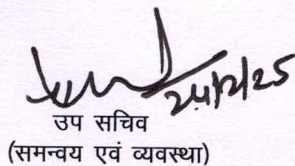 24/2/25
उप सचिव
(समन्वय एवं व्यवस्था)